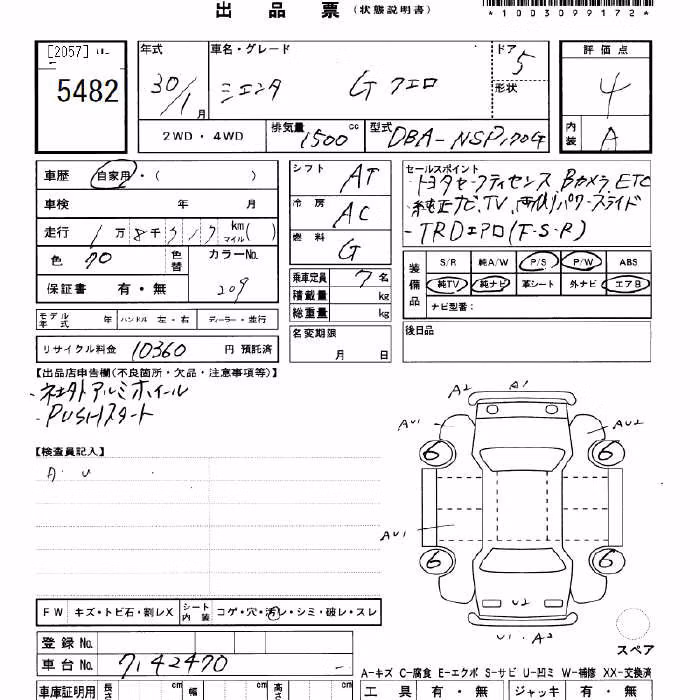 出 品 票 (状態説明書)
*1003099172*
[2057]
5482
年式 30/1月
車名・グレード シエンタ G クエロ
ドア 5
形状
評価点 4
内装 A
2WD・4WD
排気量 1500 cc
型式 DBA-NSP170G
車歴 自家用・( )
車検 年 月
走行 1万8千 km マイル( )
色 70 色替 カラーNo. 209
保証書 有・無
シフト AT
冷房 AC
燃料 G
乗車定員 7名
積載量 kg
総重量 kg
名変期限 月 日
セールスポイント
・トヨタセーフティセンス、Bカメラ、ETC
・純正ナビ、TV、両側パワースライド
・TRDエアロ(F・S・R)
装備品 S/R 純A/W P/S P/W ABS
純TV 純ナビ 革シート 外ナビ エアB
ナビ型番:
モデル年式 年 ハンドル 左・右 ディーラー・並行
後日品
リサイクル料金 10360 円 預託済
【出品店申告欄(不良箇所・欠品・注意事項等)】
・社外アルミホイール
・PUSHスタート
【検査員記入】
A・U
A2 A1
AU1 AU2
6 6
AU1
6 6
U2
U1・A2
スペア
FW キズ・トビ石・割レX シート内装 コゲ・穴・汚レ・シミ・破レ・スレ
登録No.
車台No. 7142470
A-キズ C-腐食 E-エクボ S-サビ U-凹ミ W-補修 XX-交換済
車庫証明用 長さ cm 幅 cm 高さ cm
工具 有・無 ジャッキ 有・無